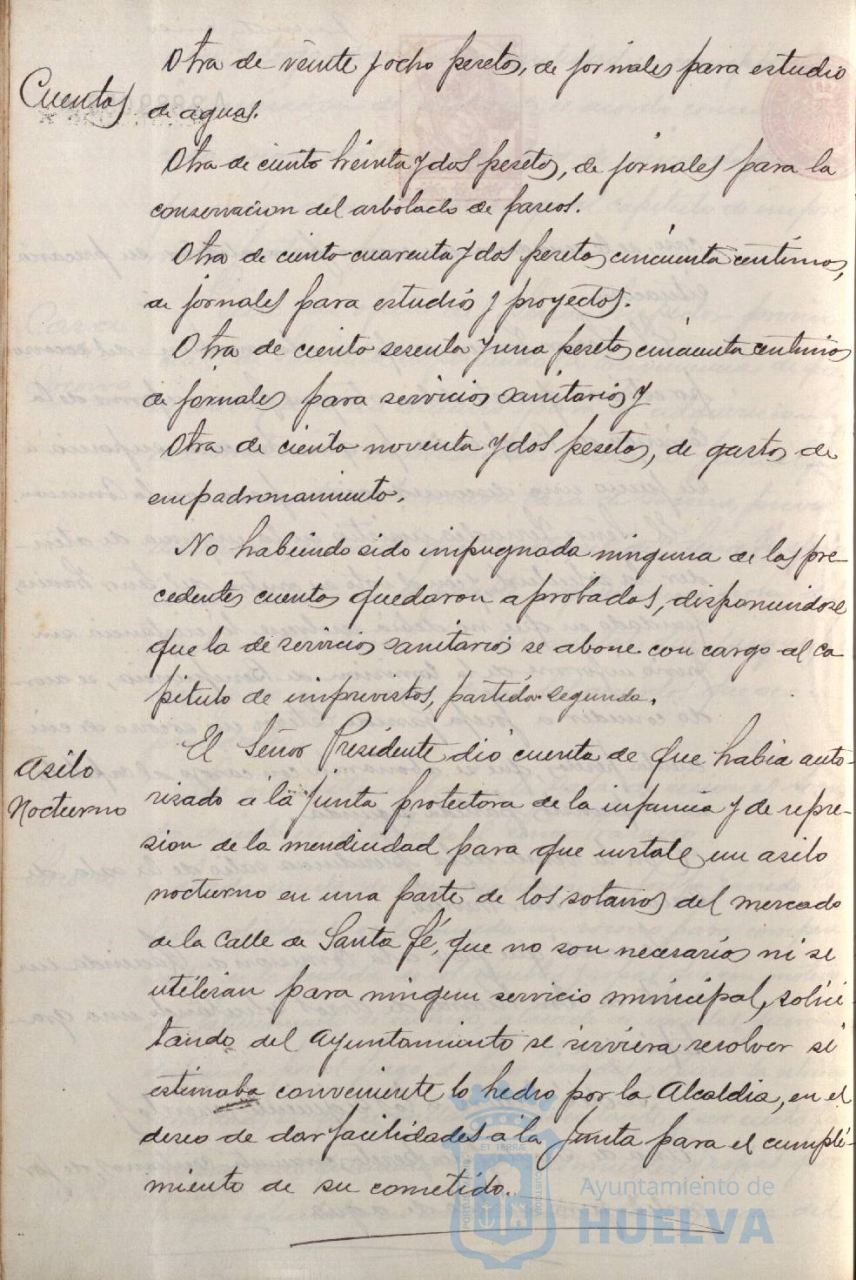 Cuentas
Otra de veinte y ocho pesetas, de jornales para estudio
de aguas.
Otra de ciento treinta y dos pesetas, de jornales para la
conservacion del arbolado de paseos.
Otra de ciento cuarenta y dos pesetas cincuenta centimos,
de jornales para estudios y proyectos.
Otra de ciento sesenta y una pesetas cincuenta centimos
de jornales para servicios sanitarios y
Otra de ciento noventa y dos pesetas, de gastos de
empadronamiento.
No habiendo sido impugnada ninguna de las pre-
cedentes cuentas quedaron aprobadas, disponiendose
que la de servicios sanitarios se abone con cargo al ca
pitulo de imprevistos, partida segunda.
Asilo
Nocturno
El Señor Presidente dió cuenta de que habia auto-
rizado á la Junta protectora de la infancia y de repre-
sion de la mendicidad para que instale un asilo
nocturno en una parte de los sotanos del mercado
de la Calle de Santa Fé, que no son necesarios ni se
utilizan para ningun servicio municipal, solici-
tando del Ayuntamiento se sirviera resolver si
estimaba conveniente lo hecho por la Alcaldia, en el
deseo de dar facilidades á la Junta para el cumpli-
miento de su cometido.
Ayuntamiento de
HUELVA